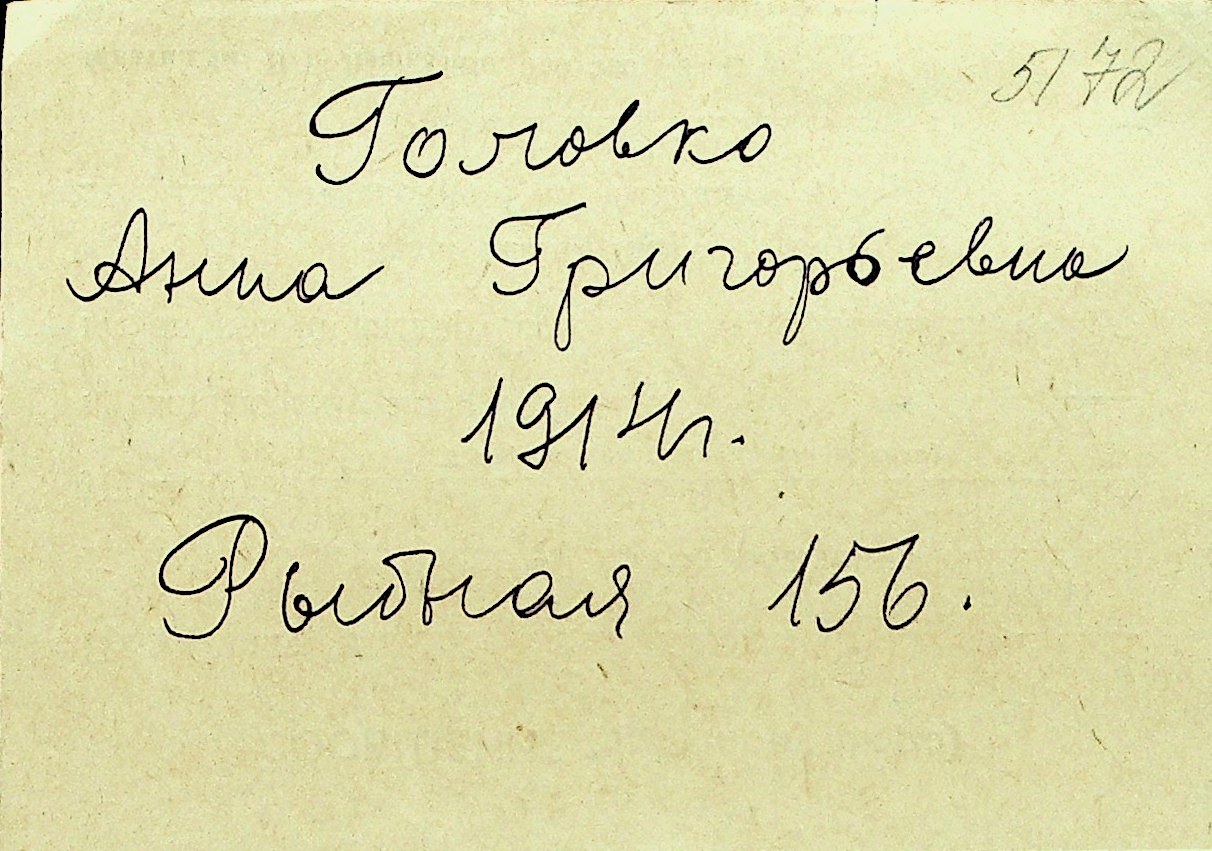 5172
Головко
Анна Григорьевна
1914г.
Рыбная 156.